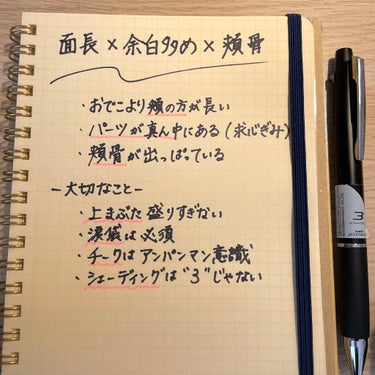 面長×余白多め×頬骨
・おでこより頬の方が長い
・パーツが真ん中にある(求心ぎみ)
・頬骨が出っぱっている
-大切なこと-
・上まぶた盛りすぎない
・涙袋は必須
・チークはアンパンマン意識
・シェーディングは"3"じゃない
3